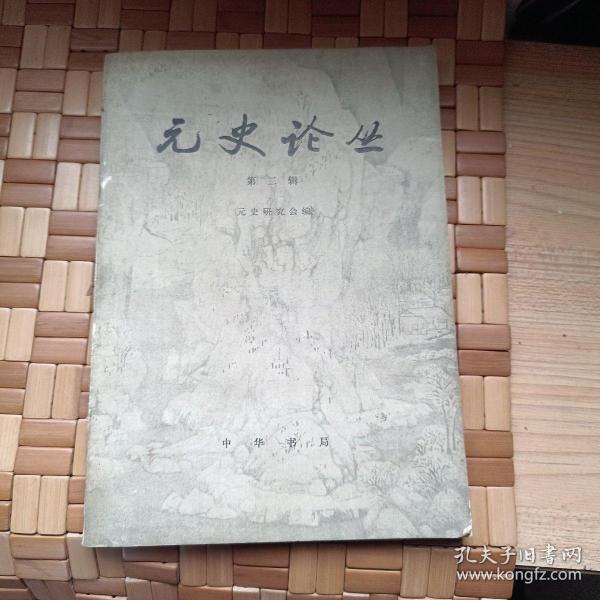 元史论丛
第二辑
元史研究会编
中华书局
孔夫子旧书网
www.kongfz.com